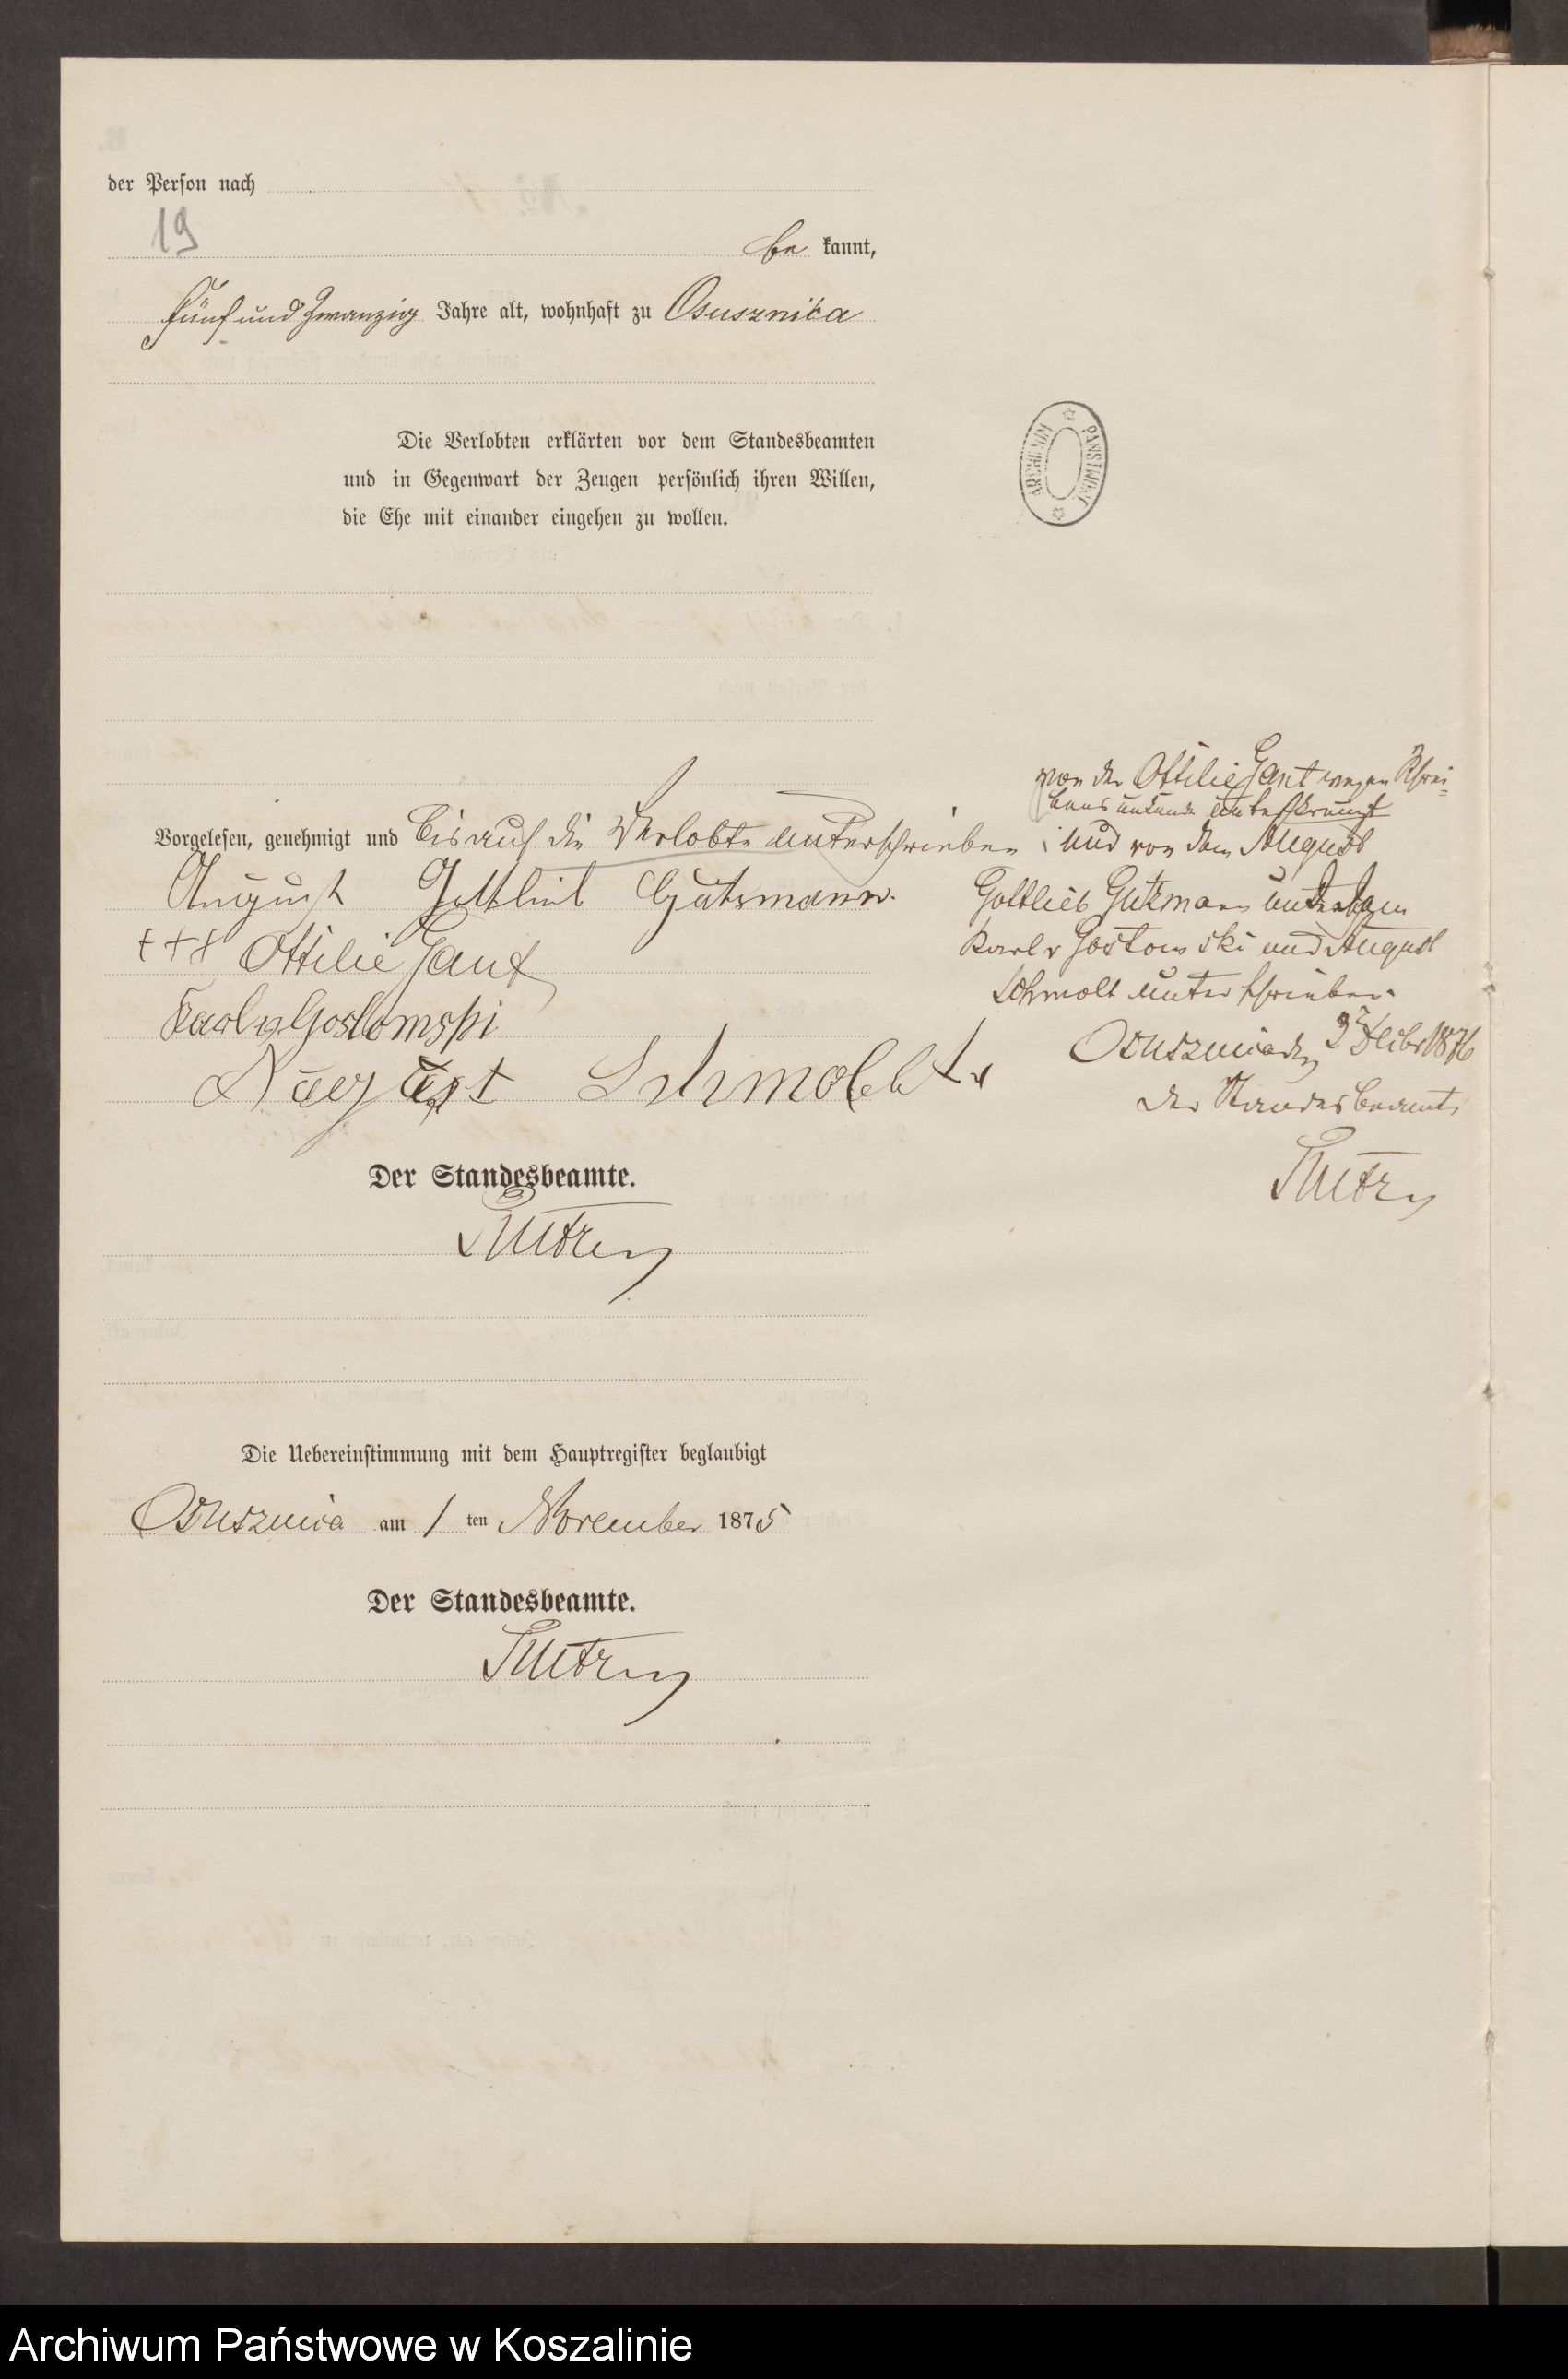 der Person nach
19
be kannt,
fünf und zwanzig Jahre alt, wohnhaft zu Osusznica
Die Verlobten erklärten vor dem Standesbeamten
und in Gegenwart der Zeugen persönlich ihren Willen,
die Ehe mit einander eingehen zu wollen.
ARCHIWUM PAŃSTWOWE
Vorgelesen, genehmigt und bis auf die Verlobte unterschrieben
August Gottlieb Gutzmann.
+++ Ottilie Gant
Karl v Gostomski
August Schmoldt
Der Standesbeamte.
Die Uebereinstimmung mit dem Hauptregister beglaubigt
Osusznica am 1 ten November 1875
Der Standesbeamte.
von der Ottilie Gant wegen Schrei-
bens unkunde unterkreuzt
und von dem August
Gottlieb Gutzmann
Karl v Gostomski und August
Schmolt unterschrieben.
Osusznica den 1876
Der Standesbeamte
Archiwum Państwowe w Koszalinie